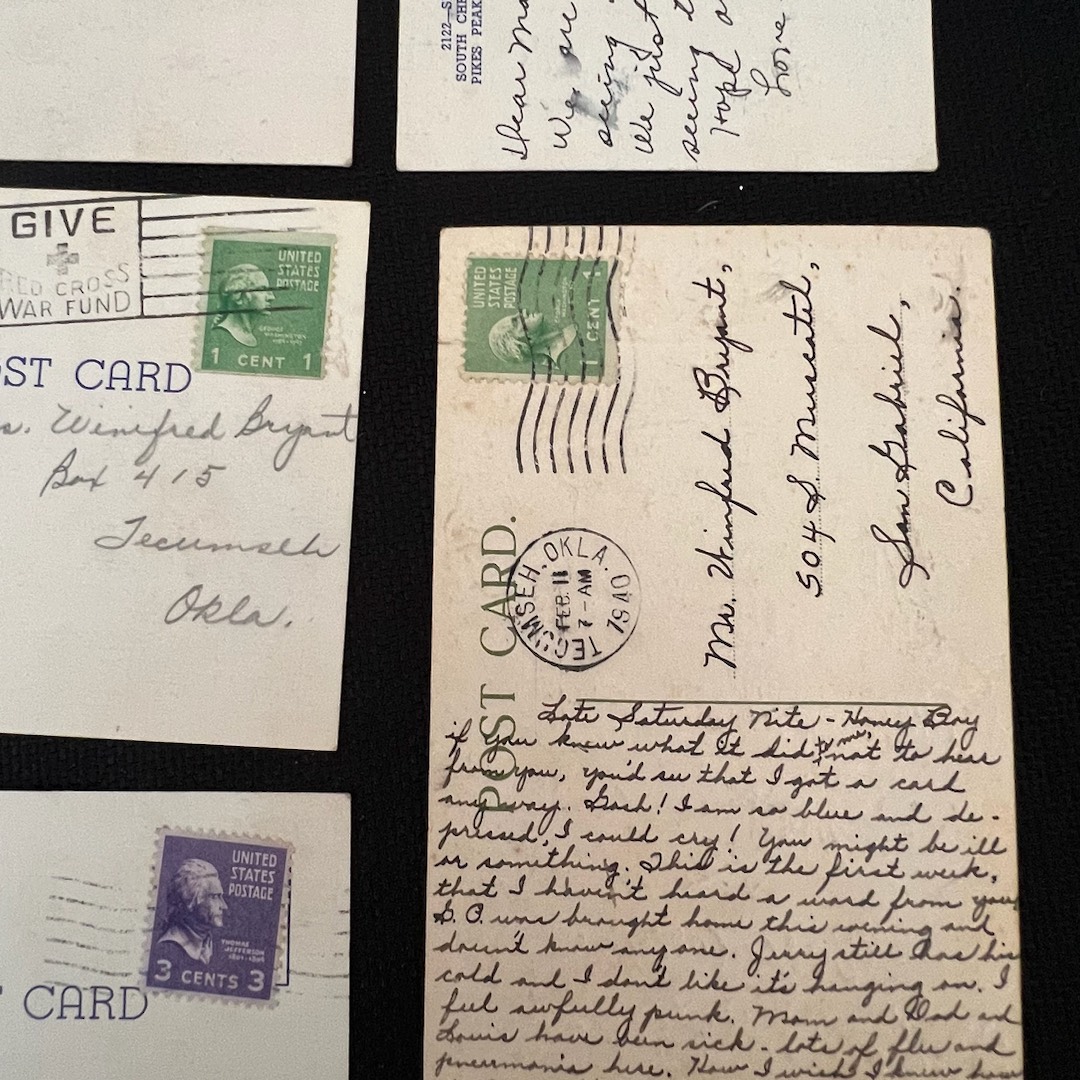 2122—S
SOUTH CHE
PIKES PEAK
Dear Ma
We are
seeing
We just
seeing t
Hope a
Love
GIVE
RED CROSS
WAR FUND
UNITED
STATES
POSTAGE
GEORGE
WASHINGTON
1 CENT 1
OST CARD
s. Winifred Bryant
Box 415
Tecumseh
Okla.
UNITED
STATES
POSTAGE
THOMAS
JEFFERSON
1801-1809
3 CENTS 3
T CARD
UNITED
STATES
POSTAGE
1 CENT 1
POST CARD.
TECUMSEH, OKLA.
FEB 11
7-AM
1940
Mr. Winfred Bryant,
504 S. Muscatel,
San Gabriel,
California.
Late Saturday Nite - Honey Boy
if you know what it did to me, not to hear
from you, you'd see that I got a card
any way. Gosh! I am so blue and de-
pressed, I could cry! You might be ill
or something. This is the first week,
that I haven't heard a word from you
was brought home this evening and
doesn't know any one. Jerry still has his
cold and I don't like it's hanging on. I
feel awfully punk. Mom and Dad and
Louis have been sick - lots of flu and
pneumonia here. How I wish I knew how